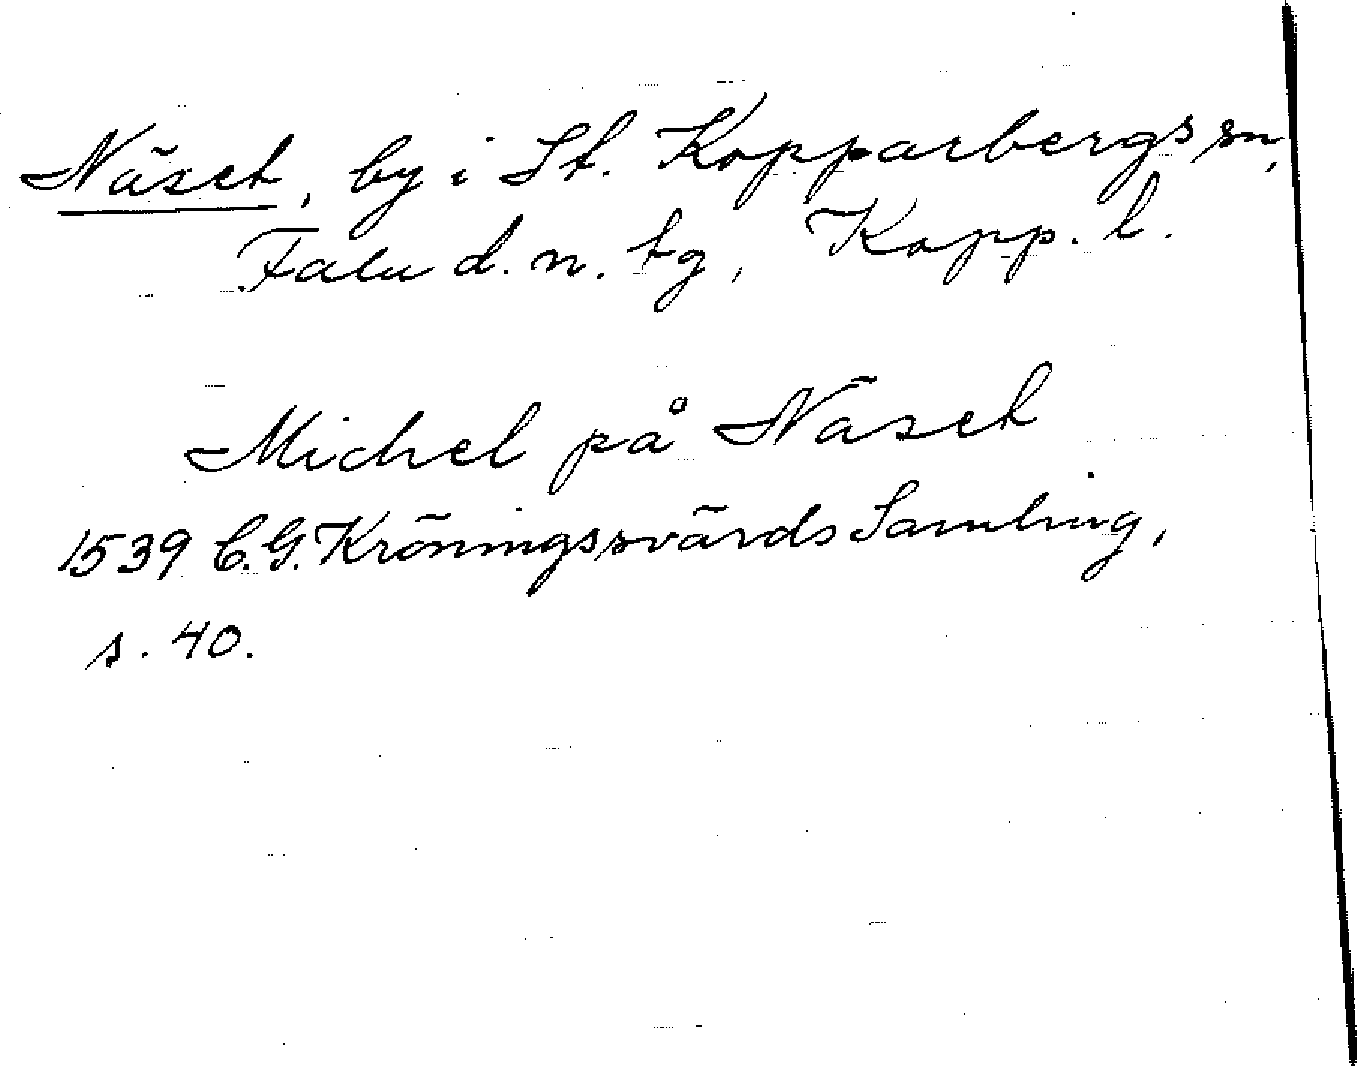 Näset, by i St. Kopparbergs sn,
Falu d. n. tg, Kopp. l.
Michel på Näset
1539 C. G. Kröningssvärds Samling,
s. 40.